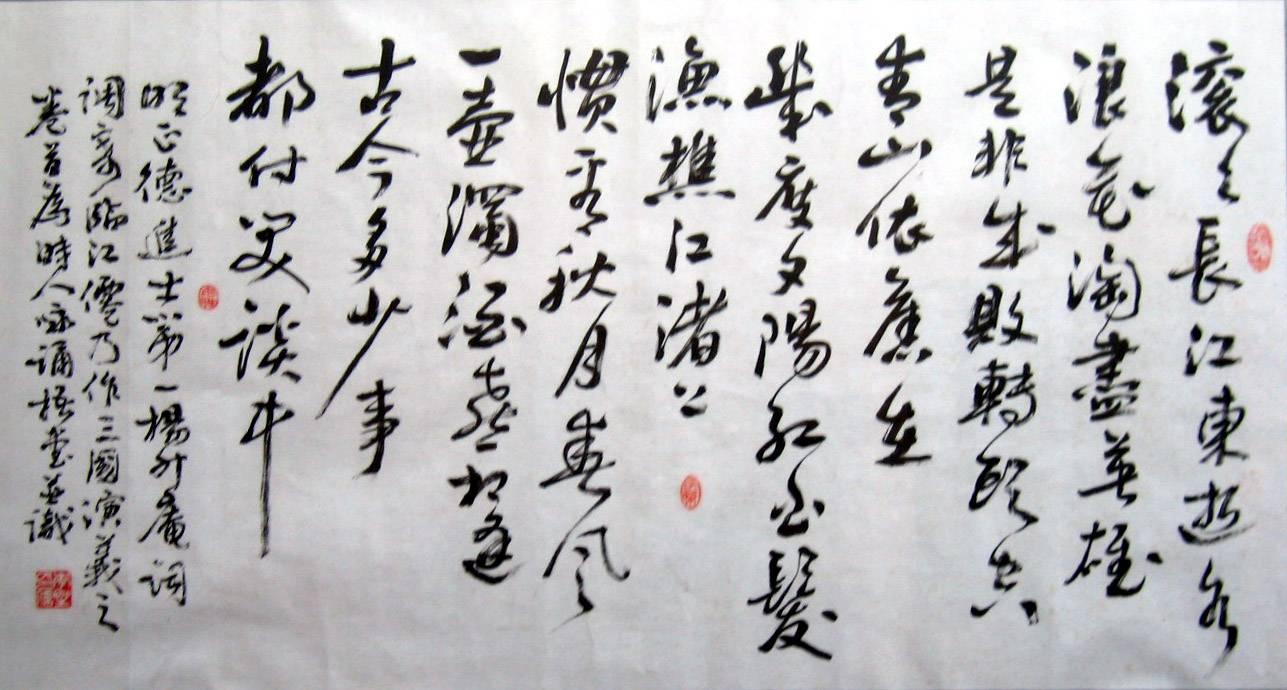 滚々長江東逝水
浪花淘盡英雄
是非成敗轉頭空
青山依舊在
幾度夕陽紅白髮
漁樵江渚上
惯看秋月春風
一壺濁酒喜相逢
古今多少事
都付笑談中
明正德進士第一楊升庵詞
調寄臨江僊乃作三國演義之
卷首為時人咏誦悟堂並識